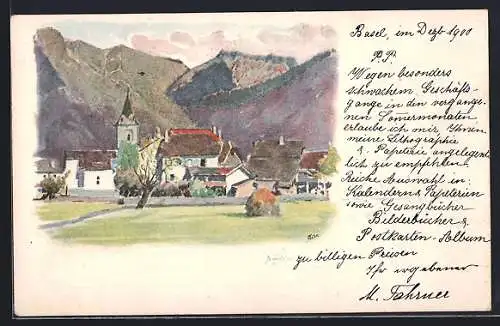 Basel, im Dezb 1900
P.P.
Wegen besonders
schwachem Geschäfts-
gange in den vergange-
nen Sommermonaten
erlaube ich mir Ihnen
meine Lithographie
& Papeterie angelegent
lich zu empfehlen.
Reiche Auswahl in:
Kalendern & Papeterien
sowie Gesangbücher
Bilderbücher &
Postkarten-Album
zu billigen Preisen
Ihr ergebener
M. Fahrner